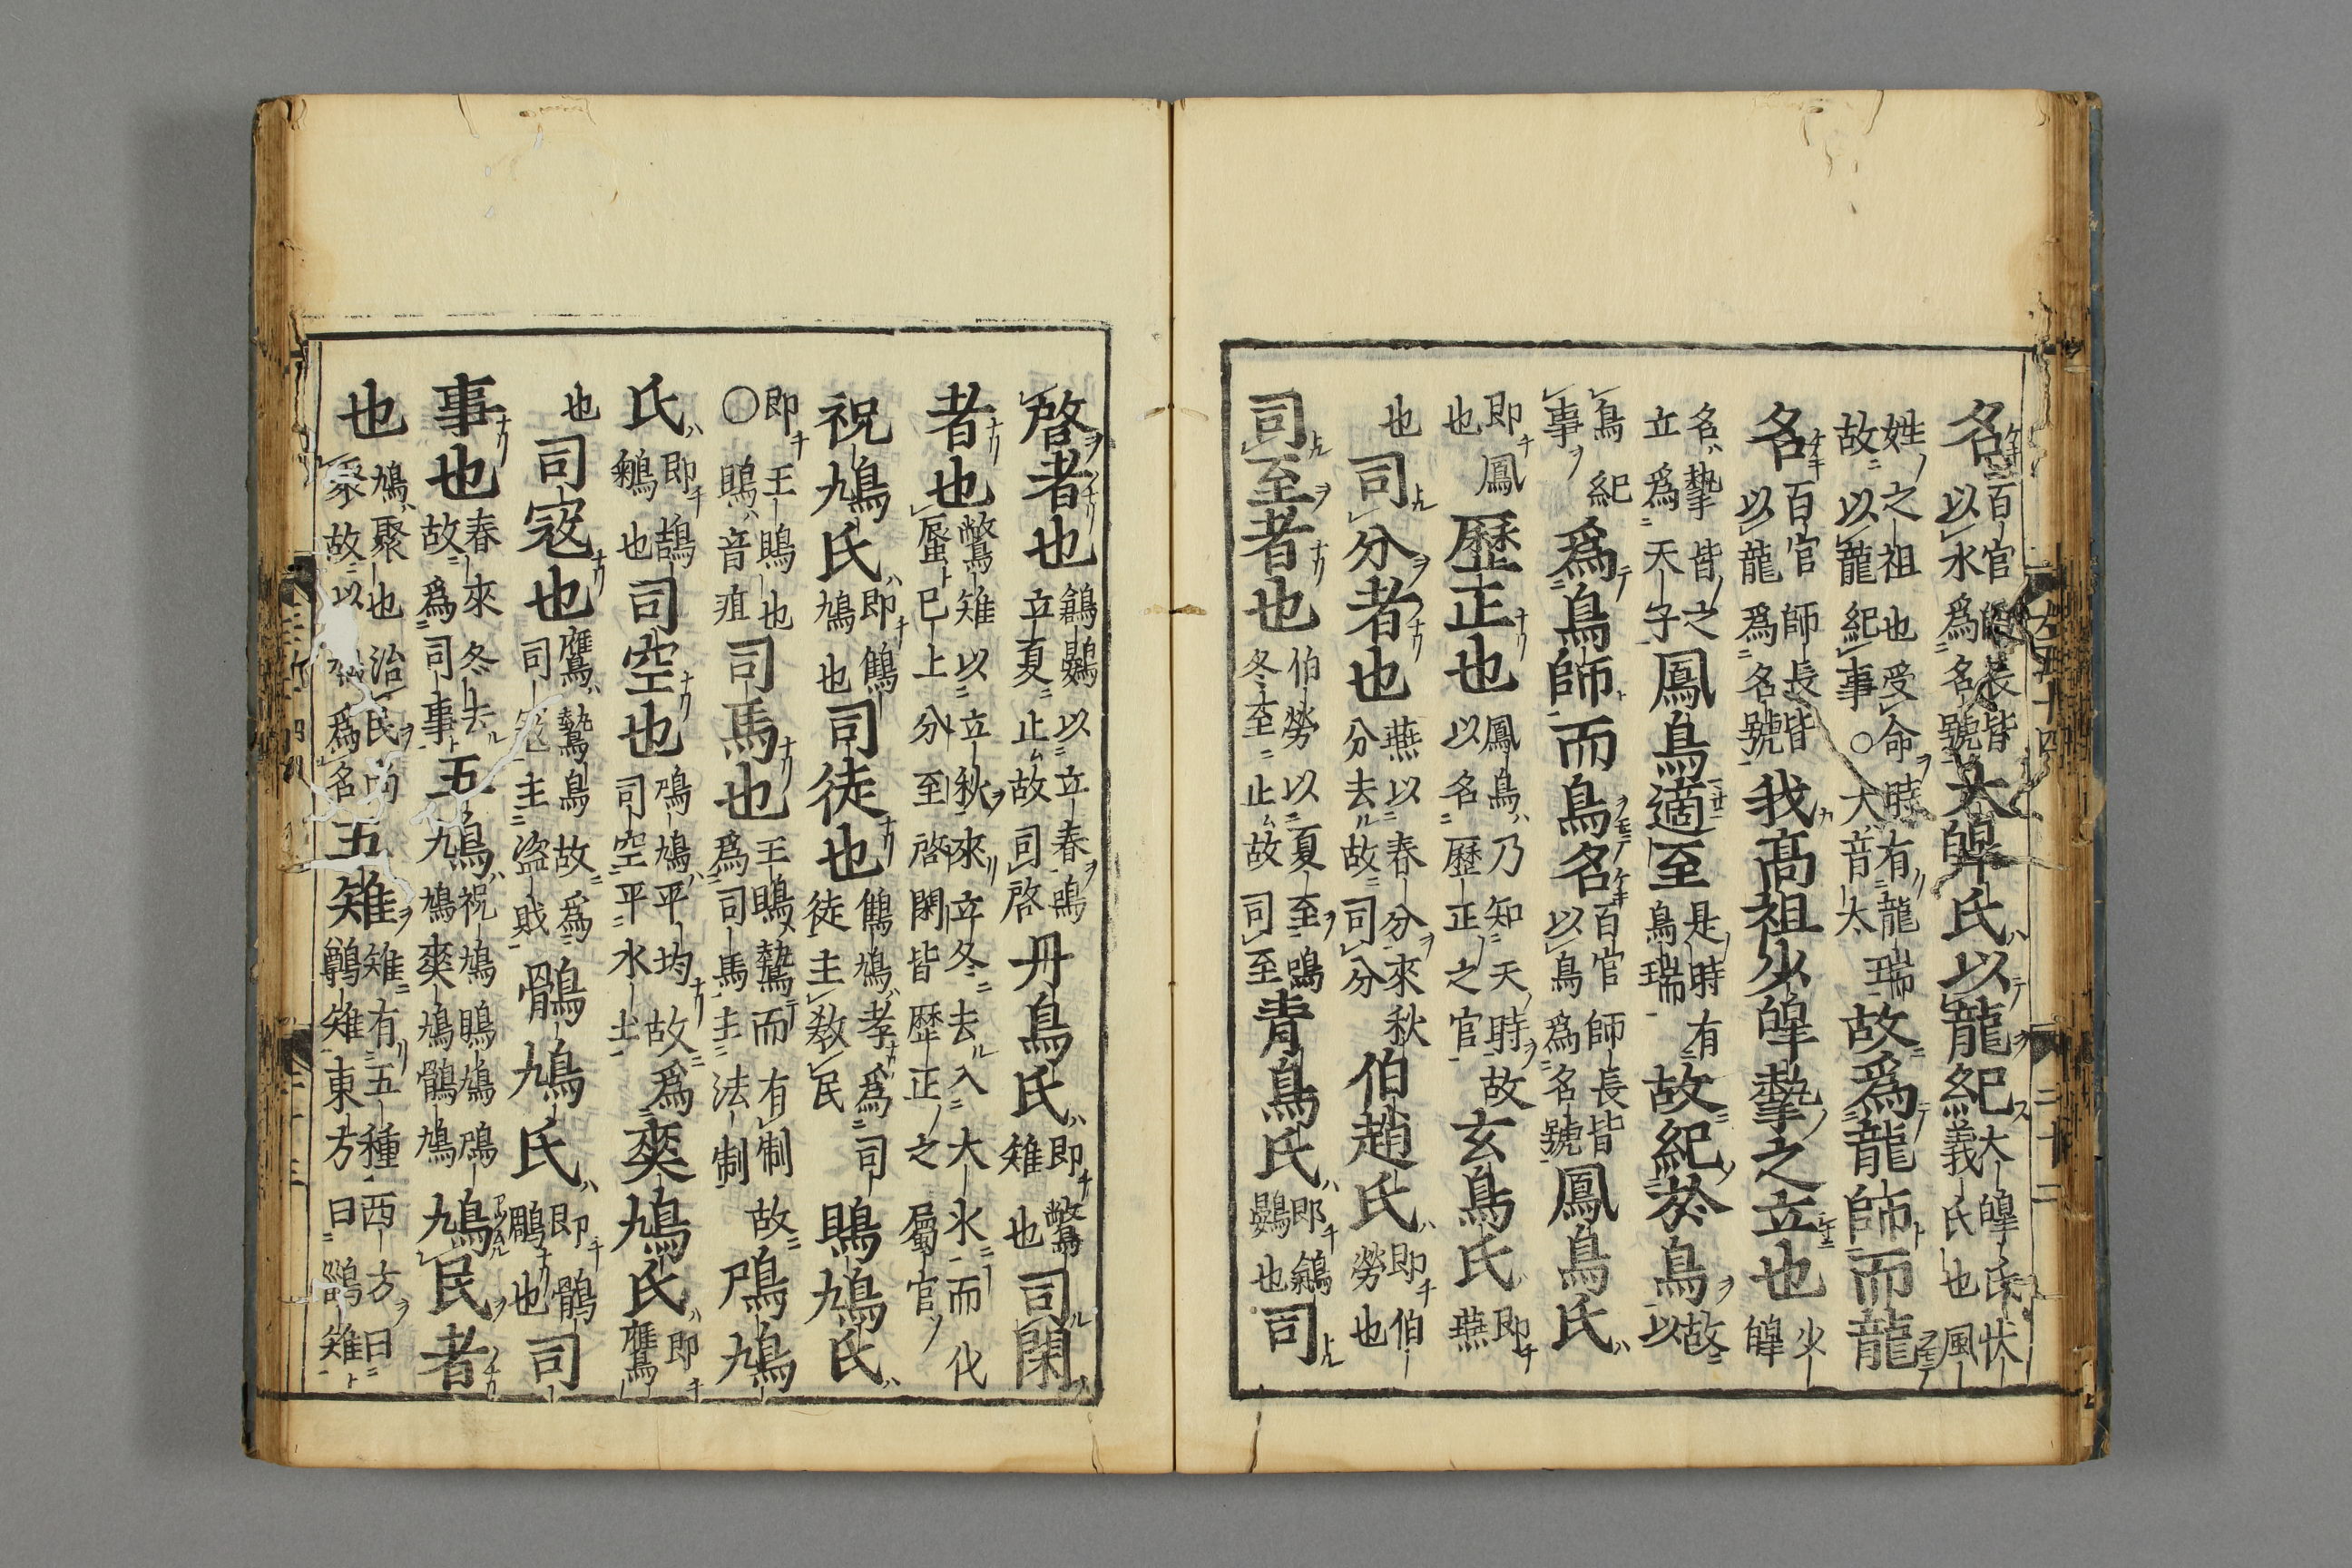 名百官師長皆以水爲名號大皥氏以龍紀大皥氏伏義氏也風
姓之祖也受命時有龍瑞故以龍紀事○大音太故爲龍師而龍
名百官師長皆以龍爲名號我高祖少皥摯之立也少皥
名摯皆之立爲天子鳳鳥適至是時有鳥瑞故紀於鳥故以
鳥紀事爲鳥師而鳥名百官師長皆以鳥爲名號鳳鳥氏
即鳳也歷正也鳳鳥乃知天時故以名歷正之官玄鳥氏即燕
也司分者也燕以春分來秋分去故司分伯趙氏即伯勞也
司至者也伯勞以夏至鳴冬至止故司至青鳥氏即鶬鷃也司
啓者也鶬鷃以立春鳴立夏止故司啓丹鳥氏即鷩雉也司閉
者也鷩雉以立秋來立冬去入大水而化蜃巳上分至啓閉皆歷正之屬官
祝鳩氏即鵻鳩也司徒也鵻鳩孝爲司徒主敎民鴡鳩氏
即王鴡也○鴡音疽司馬也王鴡鷙而有制故爲司馬主法制鳲鳩
氏即鴶鵴也司空也鳲鳩平均故爲司空平水土爽鳩氏即鷹
也司寇也鷹鷙鳥故爲司寇主盗賊鶻鳩氏即鶻鵰也司
事也春來冬去故爲司事五鳩祝鳩鴡鳩鳲鳩爽鳩鶻鳩鳩民者
也鳩聚也治民尚聚故以鳩爲名五雉雉有五種西方曰鷷雉東方曰鶅雉